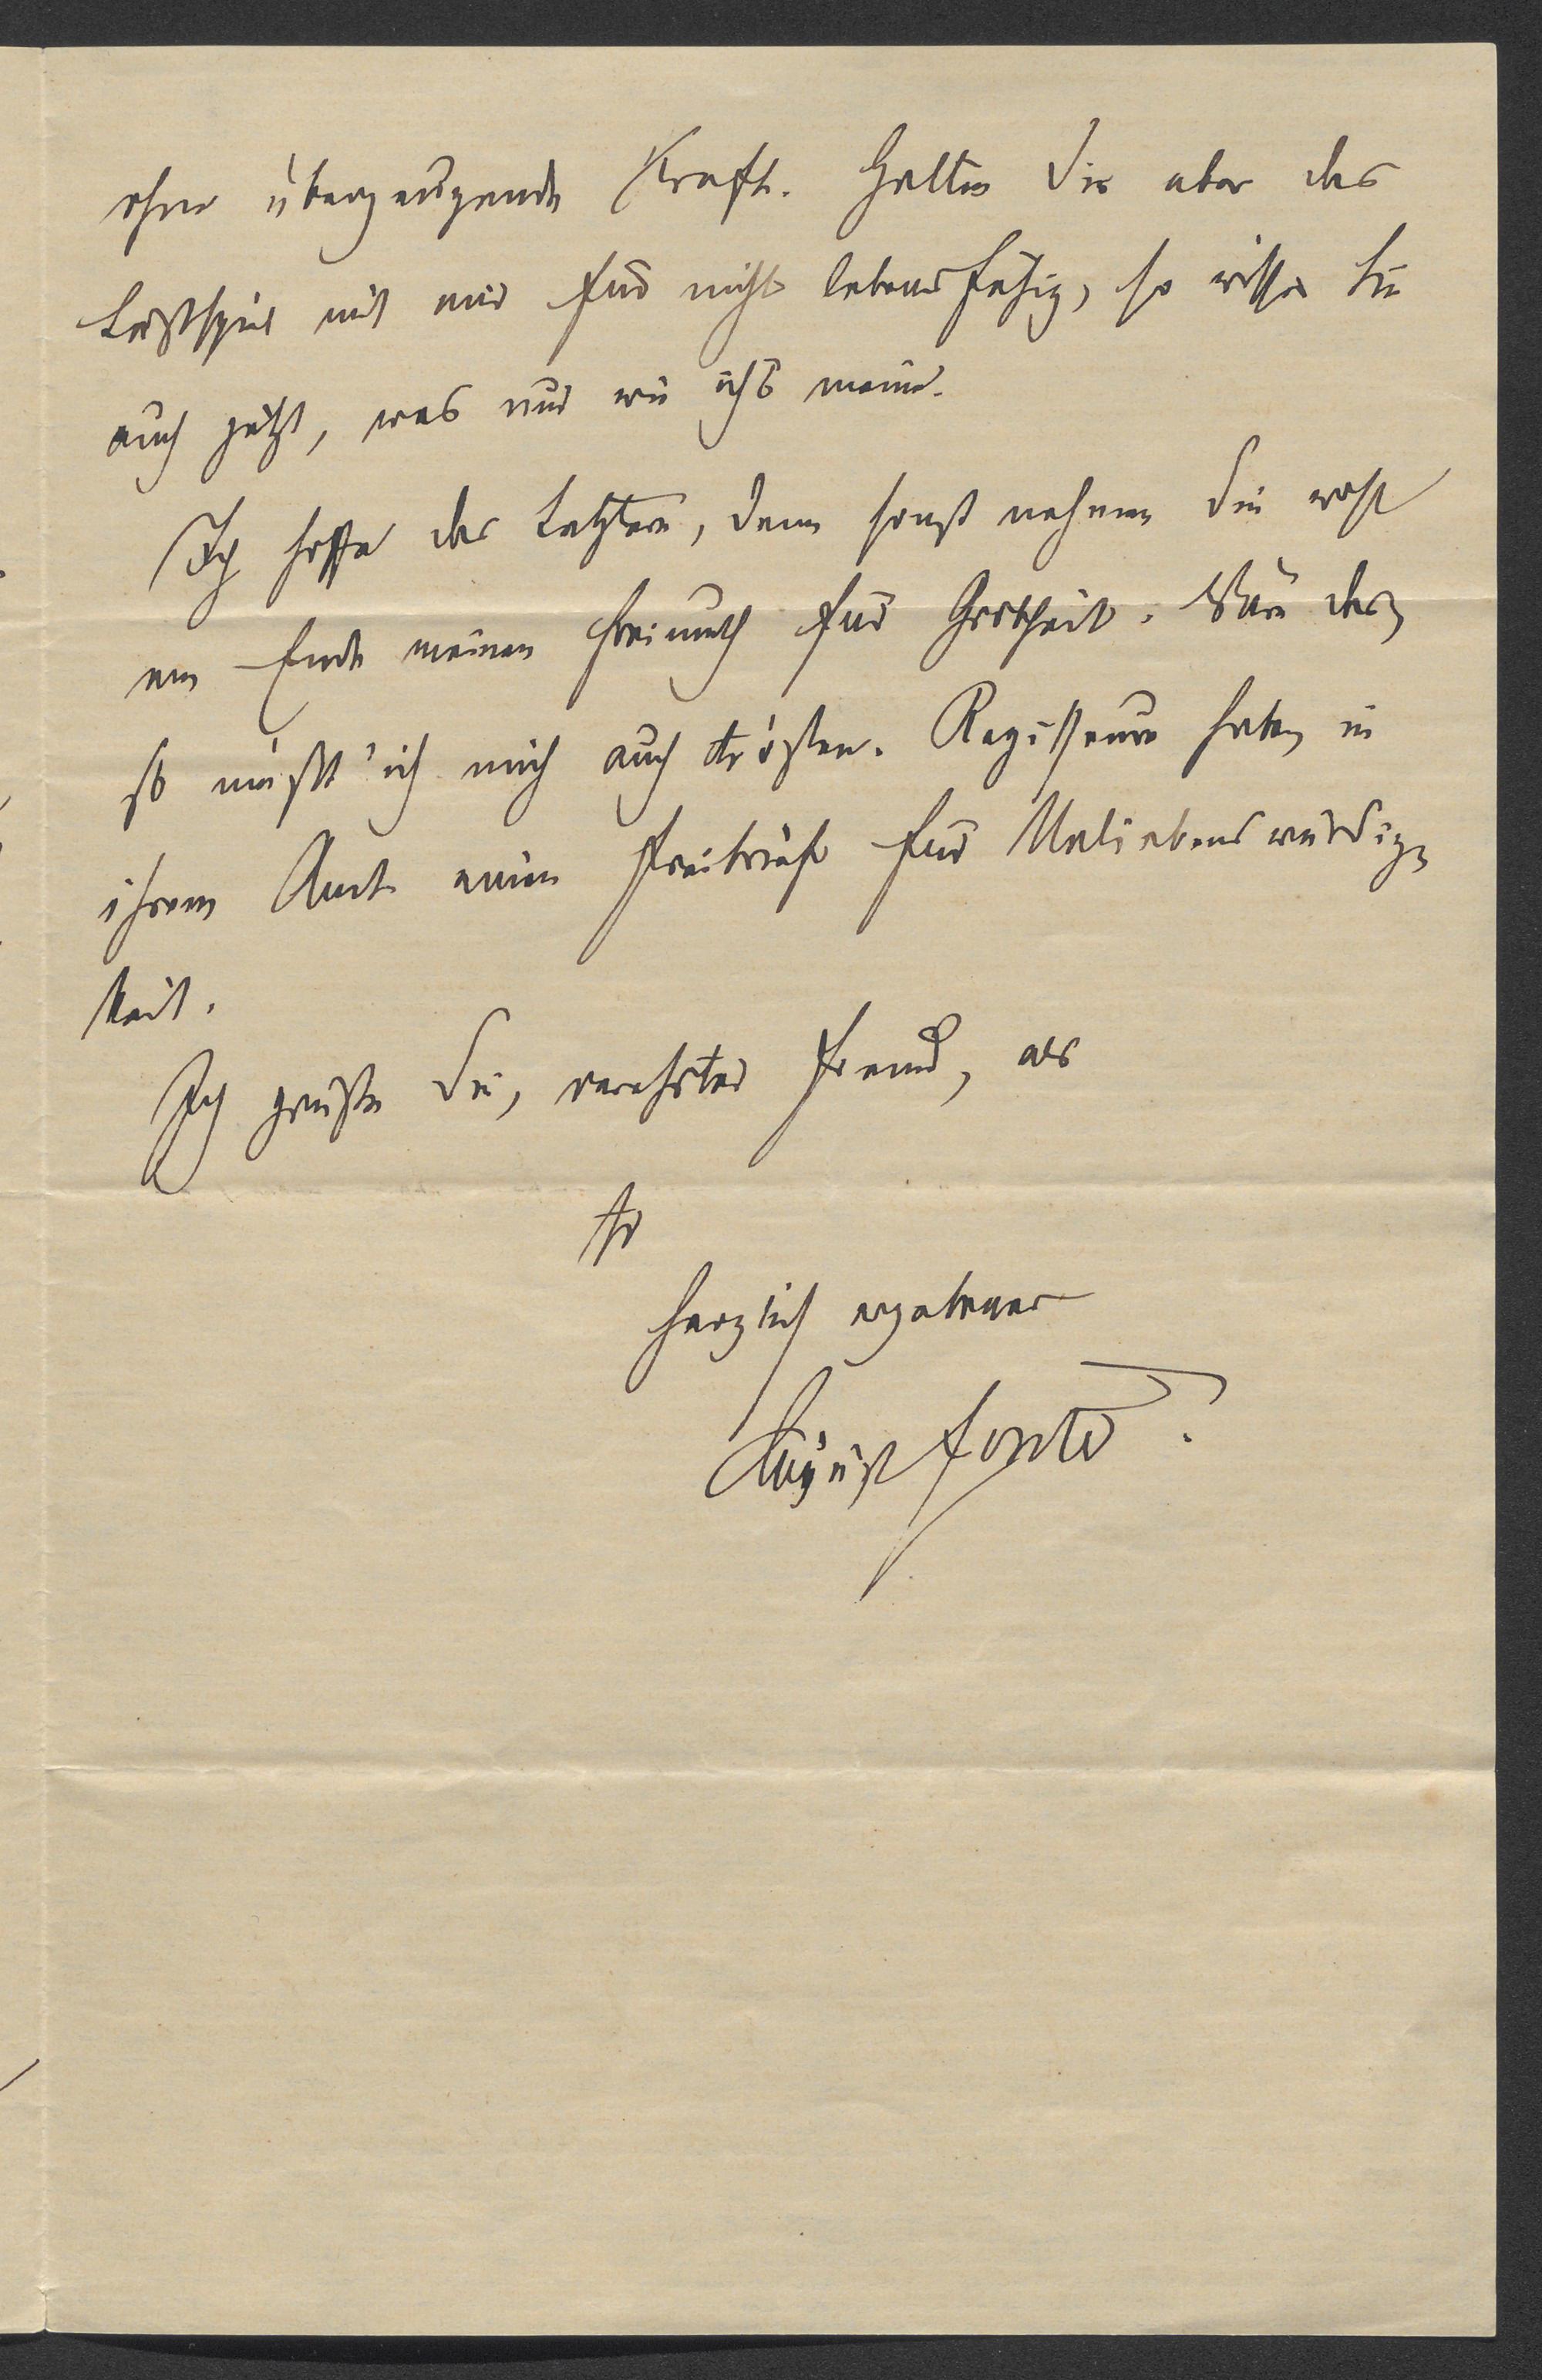 ohne überzeugende Kraft. Halten Sie aber das
Lustspiel mit mir für nicht lebensfähig, so wissen Sie
auch jetzt, was und wie ichs meine.
Ich hoffe das Letztere, denn sonst nehmen Sie wohl
am Ende meinen Freimuth für Grobheit. Wäre das,
so müßt' ich mich auch trösten. Regisseure haben in
ihrem Amte einen Freibrief für Unliebenswürdig-
keit.
Ich grüße Sie, verehrter Freund, als
Ihr
herzlich ergebener
August Förster.